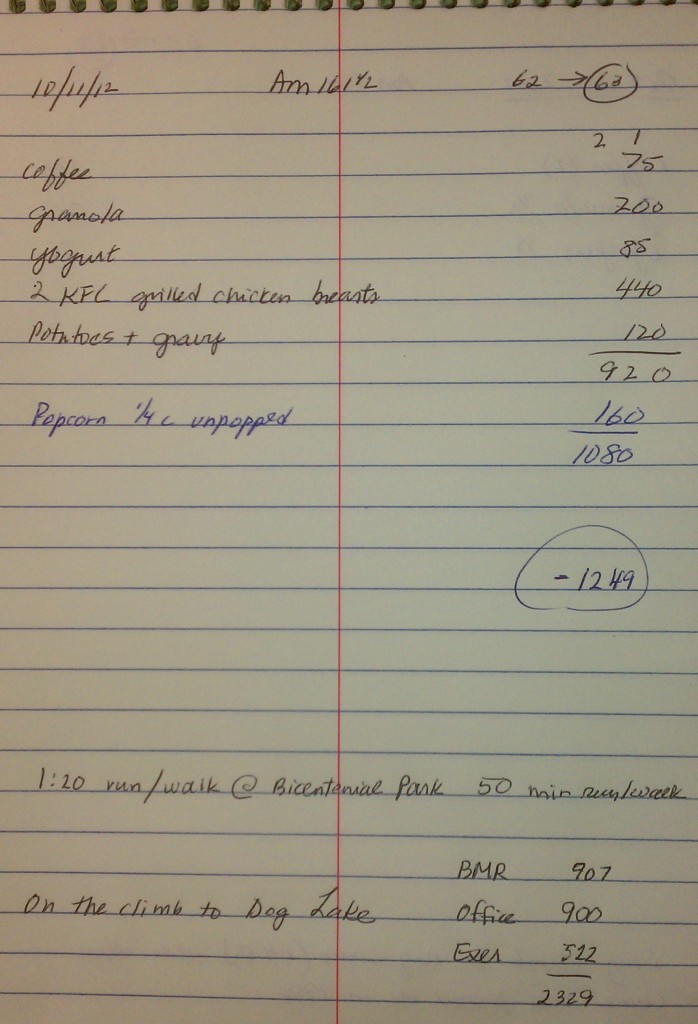 10/11/12 Am 161 1/2 62 → 63
2 1
coffee 75
granola 200
yogurt 85
2 KFC grilled chicken breasts 440
Potatoes + gravy 120
920
Popcorn 1/4 c unpopped 160
1080
- 1249
1:20 run/walk @ Bicentenial Park 50 min run/walk
BMR 907
On the climb to Dog Lake Office 900
Exer 522
2329